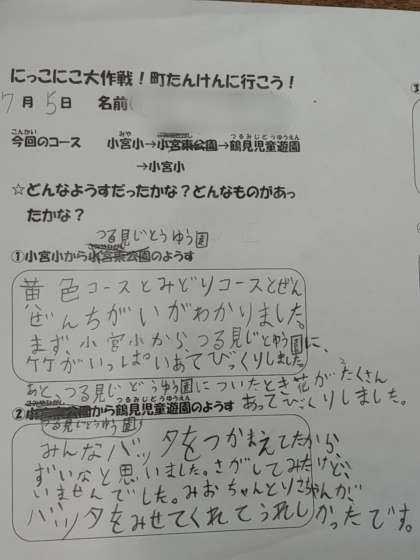 にっこにこ大作戦！町たんけんに行こう！
7月5日 名前(
こんかい みや つるみじどうゆうえん
今回のコース 小宮小→小宮東公園→鶴見児童遊園
→小宮小
☆どんなようすだったかな？どんなものがあっ
たかな？
つる見じどうゆう園
①小宮小から小宮東公園のようす
黄色コースとみどりコースとぜん
ぜんちがいがわかりました。
まず、小宮小から、つる見じどうゆう園に、
竹がいっぱいあてびっくりしました
あと、つる見じどうゆう園についたとき花がたくさん
あってびっくりしました。
つるみじどうゆうえん
②小宮東公園から鶴見児童遊園のようす
つる見じどうゆう園
みんなバッタをつかまえてたから、
ずいなと思いました。さがしてみたけど、
いませんでした。みおちゃんとりさちゃんが、
バッタをみせてくれてうれしかったです。